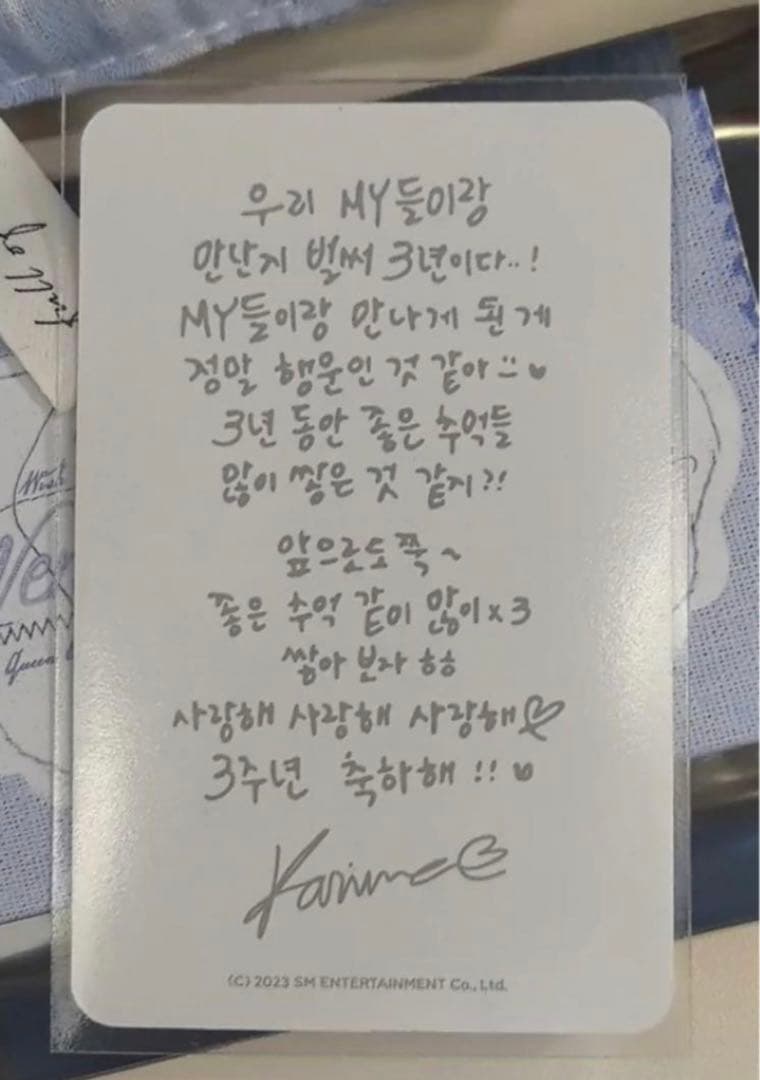 우리 MY들이랑
만난지 벌써 3년이다..!
MY들이랑 만나게 된 게
정말 행운인 것 같아
3년 동안 좋은 추억들
많이 쌓은 것 같지?!
앞으로도 쭉~
좋은 추억 같이 많이x3
쌓아 보자 ㅎㅎ
사랑해 사랑해 사랑해♡
3주년 축하해!!♥
Karina
(C) 2023 SM ENTERTAINMENT Co., Ltd.
Queen